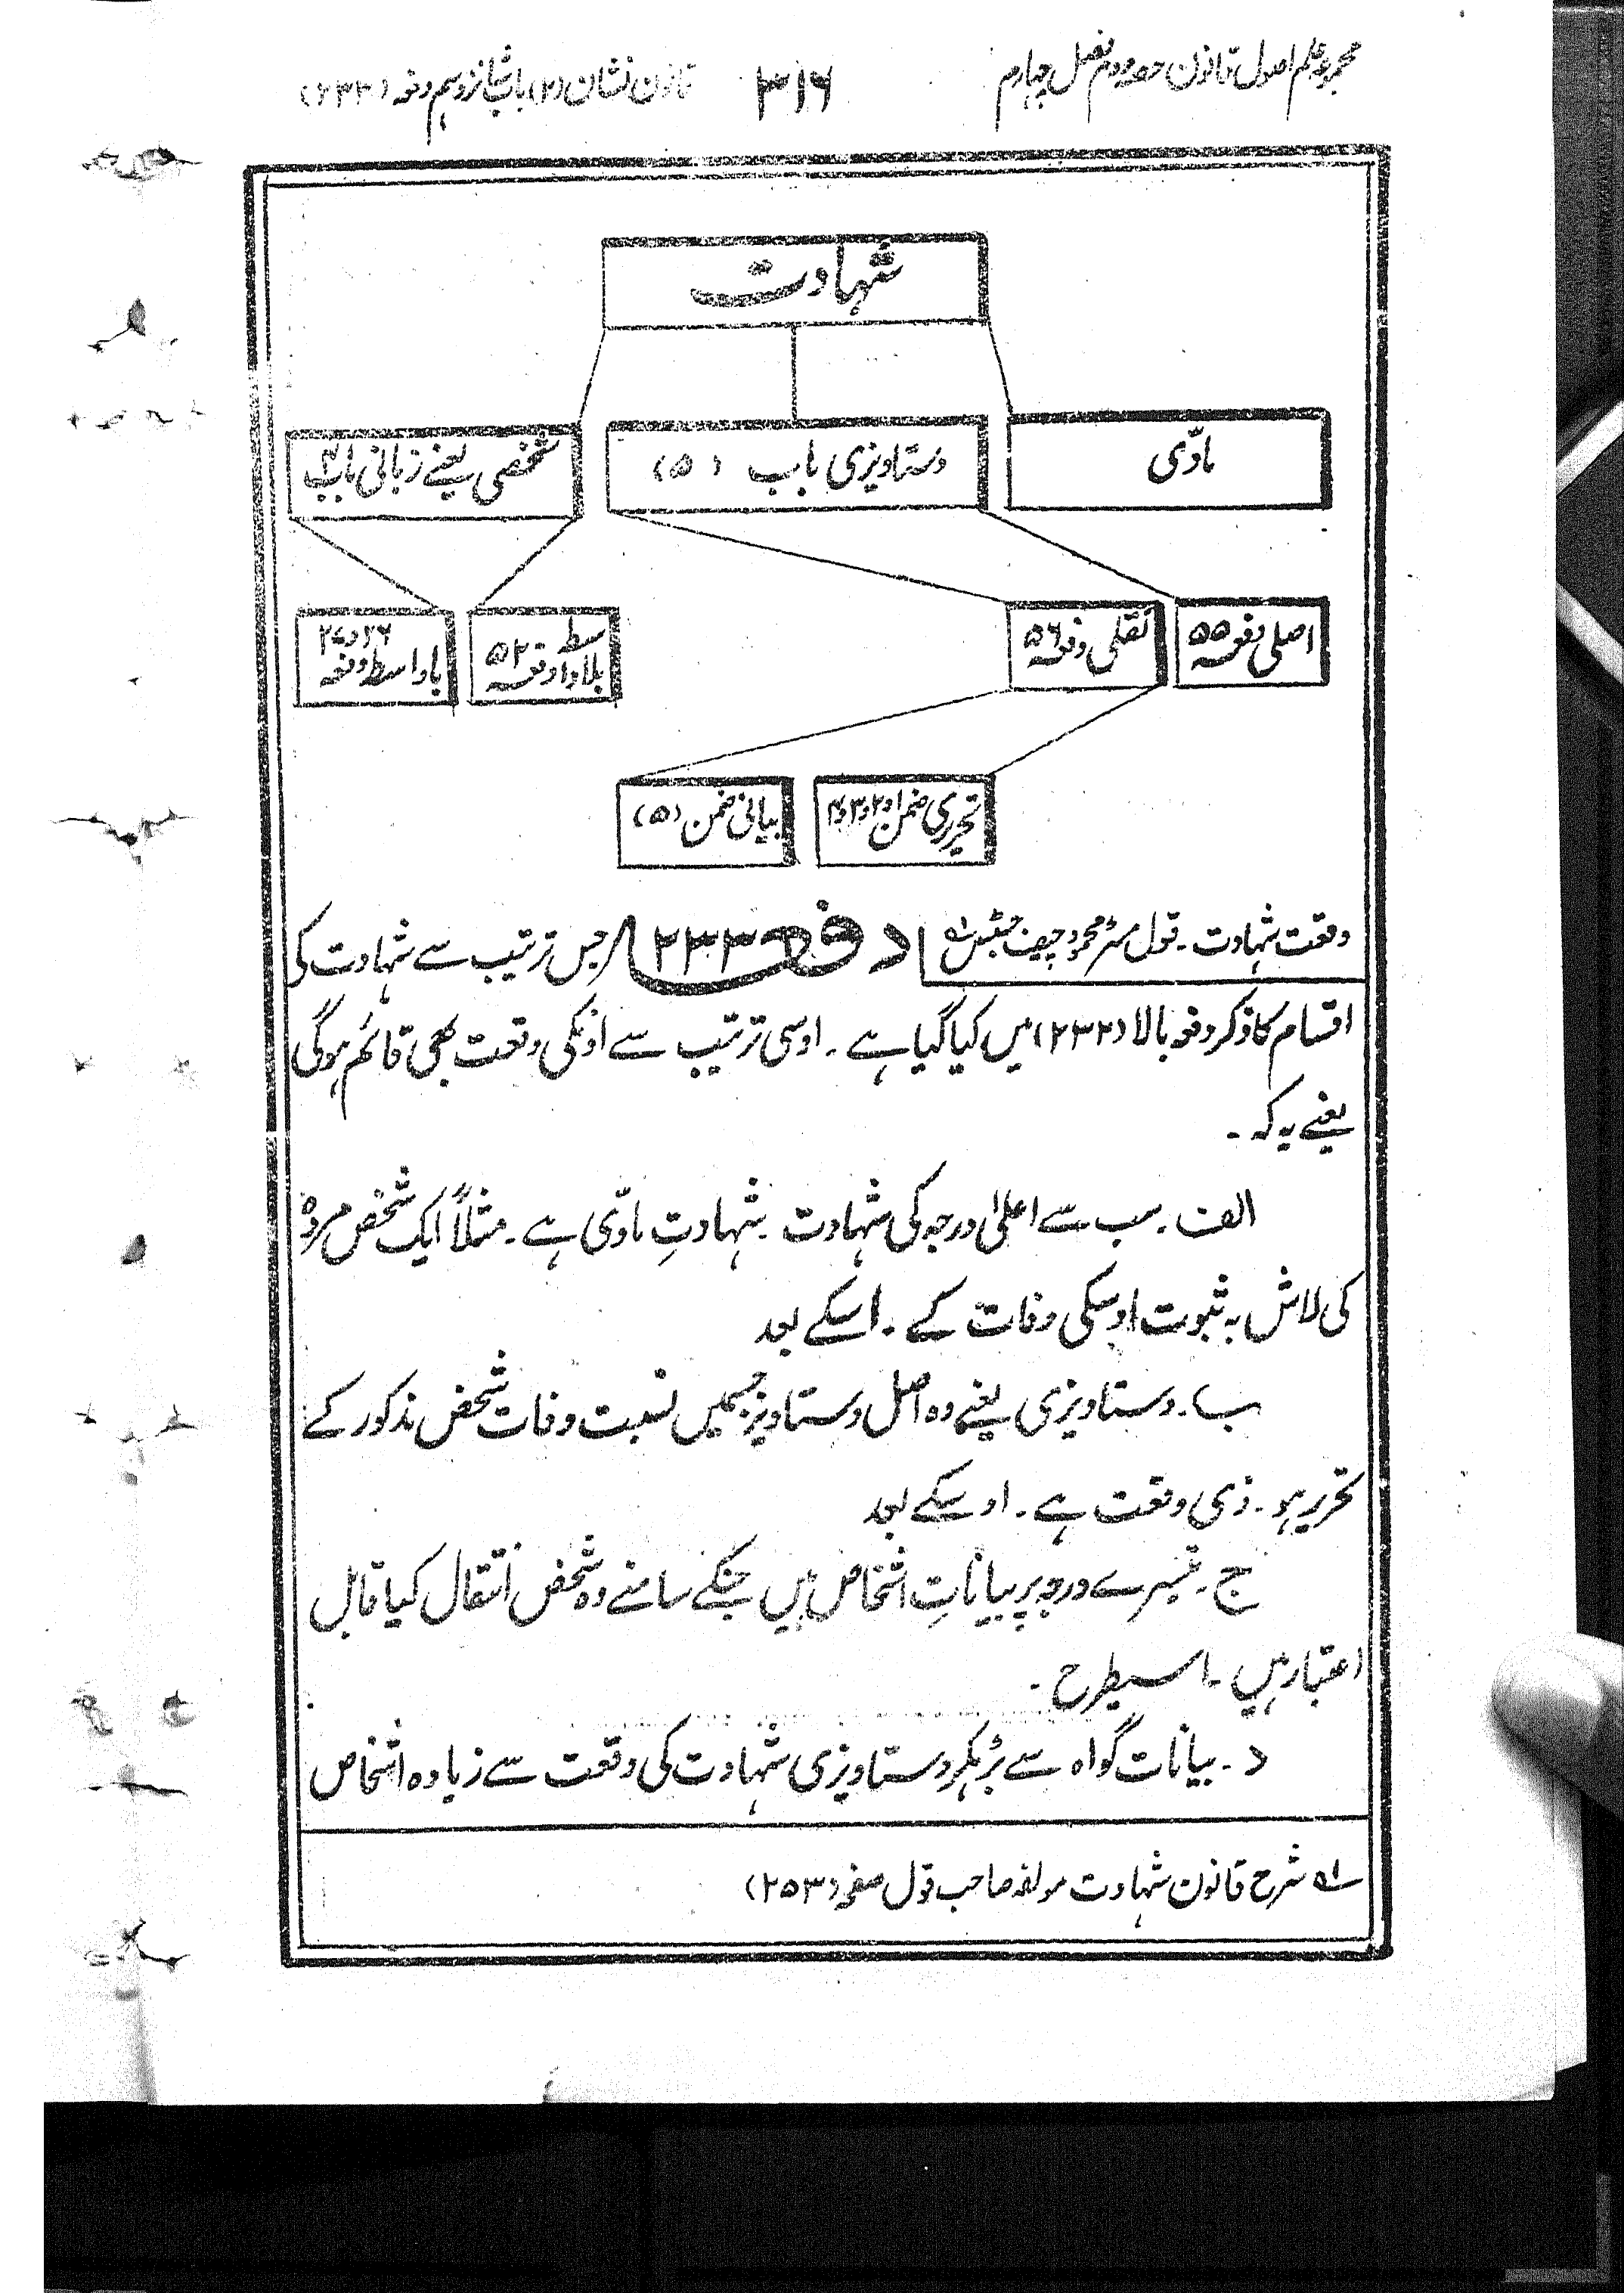 مجموعہ علم اصول قانون حصہ دوم فصل چہارم
۳۱۶
قانون نشان (۲) باب شانزدہم دفعہ (۲۳۳)
شہادت
مادّی
دستاویزی باب (۵)
شخصی یعنے زبانی باب
اصلی دفعہ ۵۵
نقلی دفعہ ۵۶
بلاواسطہ دفعہ ۵۲
باواسطہ دفعہ ۲۶ و ۲۷
تحریری ضمن ۱ و ۲ و ۳ و ۴
بیانی ضمن (۵)
وقعت شہادت۔ قول مسٹر محمود چیف جسٹس ؎۱
دفعہ ۲۳۳ جس ترتیب سے شہادت کی
اقسام کا ذکر دفعہ بالا (۲۳۲) میں کیا گیا ہے۔ اوسی ترتیب سے اونکی وقعت بھی قائم ہوگی
یعنے یہ کہ۔
الف۔ سب سے اعلیٰ درجہ کی شہادت۔ شہادتِ مادّی ہے۔ مثلاً ایک شخص مردہ
کی لاش بہ ثبوت اوسکی وفات کے۔ اسکے بعد
ب۔ دستاویزی یعنے وہ اصل دستاویز جسمیں نسبت وفات شخص مذکور کے
تحریر ہو۔ ذی وقعت ہے۔ اوسکے بعد
ج۔ تیسرے درجہ پر بیاناتِ اشخاص ہیں جنکے سامنے وہ شخص انتقال کیا قابل
اعتبار ہیں۔ اسیطرح۔
د۔ بیانات گواہ سے بڑہکر دستاویزی شہادت کی وقعت سے زیادہ اشخاص
؎۱ شرح قانون شہادت مولفہ صاحب قول صفحہ (۲۵۳)